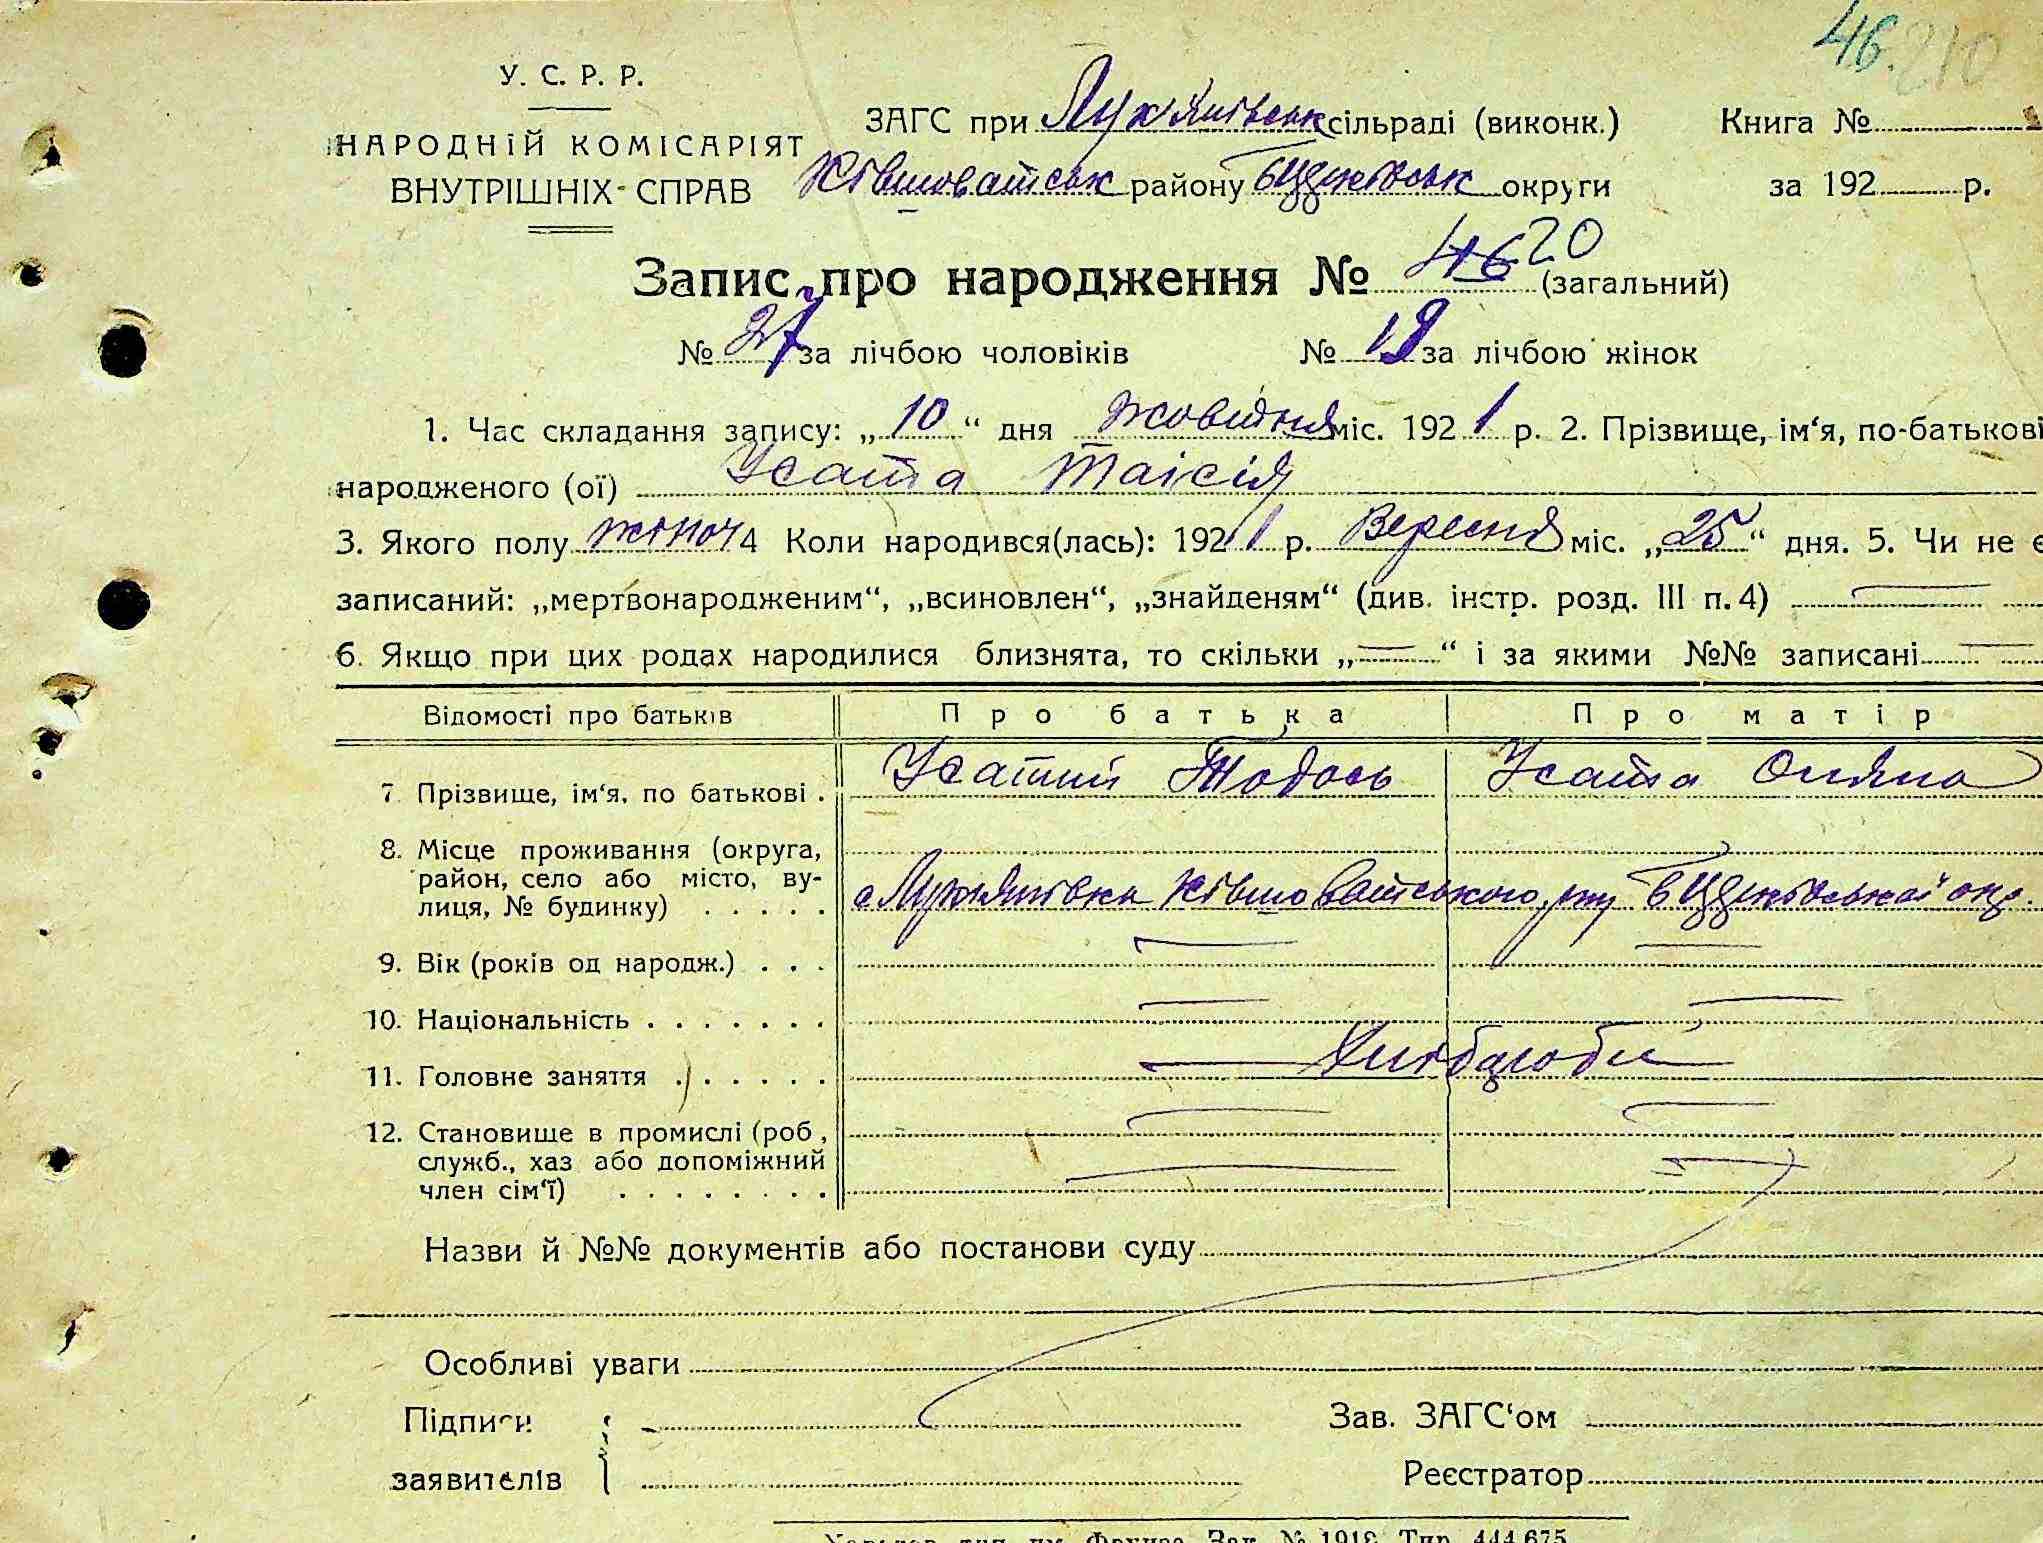 46. 210
У. С. Р. Р.
НАРОДНІЙ КОМІСАРІЯТ
ВНУТРІШНІХ СПРАВ
ЗАГС при Лукянівськ сільраді (виконк.)
Ківшоватськ району БЦерківськ округи
Книга №
за 192 р.
Запис про народження № 46 20 (загальний)
№ 27 за лічбою чоловіків № 19 за лічбою жінок
1. Час складання запису: „10“ дня жовтня міс. 1921 р. 2. Прізвище, ім‘я, по-батькові
народженого (ої) Усата Таісія
3. Якого полу жіноч 4 Коли народився(лась): 1921 р. Вересня міс. „25“ дня. 5. Чи не є
записаний: „мертвонародженим“, „всиновлен“, „знайденям“ (див. інстр. розд. III п. 4) —
6. Якщо при цих родах народилися близнята, то скільки „—“ і за якими №№ записані —
Відомості про батьків Про батька Про матір
7. Прізвище, ім‘я, по батькові . Усатий Тодось Усата Оляна
8. Місце проживання (округа,
район, село або місто, ву-
лиця, № будинку) . . . . . с Лукянівка Ківшоватського р-ну БЦерківської окр.
9. Вік (років од народж.) . . . — —
10. Національність . . . . . . . — —
11. Головне заняття . . . . . . — Хлібороби —
12. Становище в промислі (роб.,
служб., хаз або допоміжний
член сім‘ї) . . . . . . . . — —
Назви й №№ документів або постанови суду
Особливі уваги
Підписи
заявителів
Зав. ЗАГС‘ом
Реєстратор
Зак. № 1918 Тир. 444.675